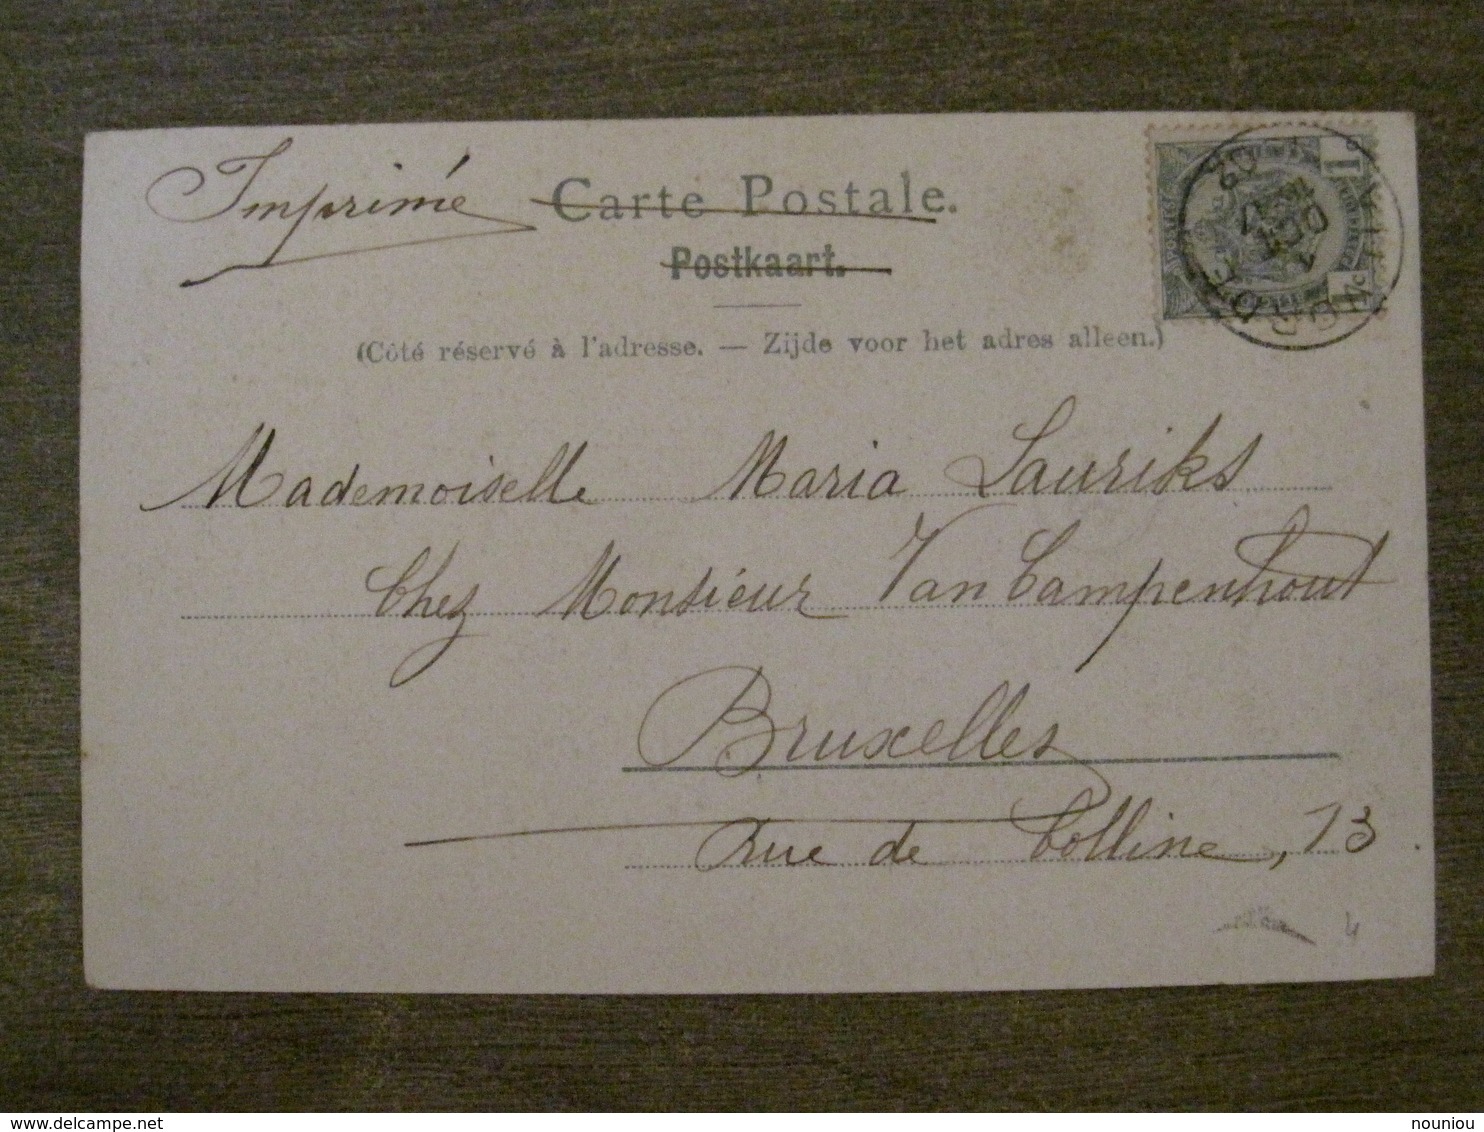 Imprimé
Carte Postale.
Postkaart.
(Côté réservé à l'adresse. — Zijde voor het adres alleen.)
Mademoiselle Maria Lauriks
Chez Monsieur Van Campenhout
Bruxelles
Rue de Colline, 13
4
nouniou